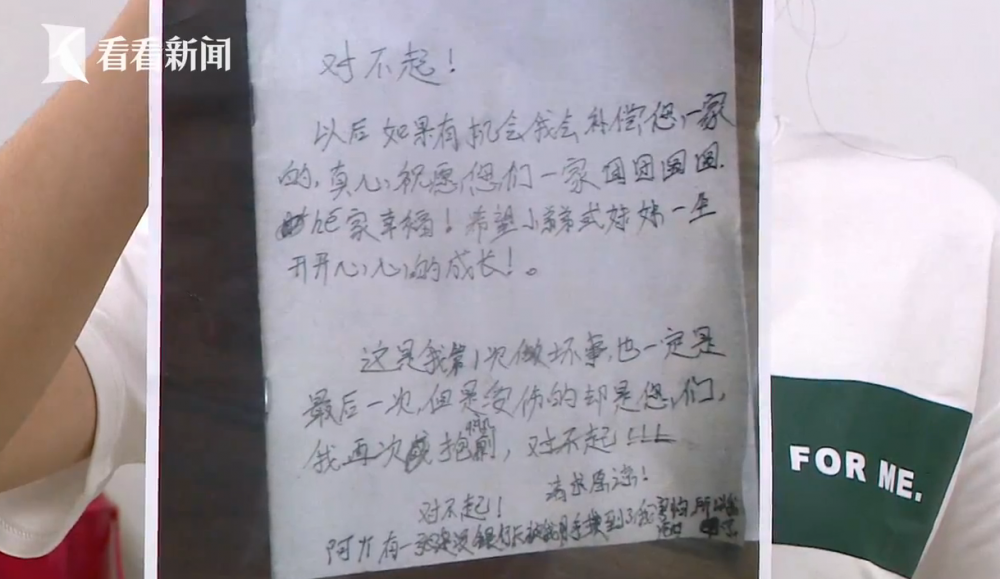 看看新闻
对不起!
以后如果有机会我会补偿您一家
的,真心祝愿您们一家团团圆圆.
家幸福!希望小弟弟妹妹一生
开开心心的成长!。
这是我第1次做坏事,也一定是
最后一次,但是受伤的却是您们,
我再次抱歉,对不起!!!
请求原谅!
对不起!
阿
FOR ME.